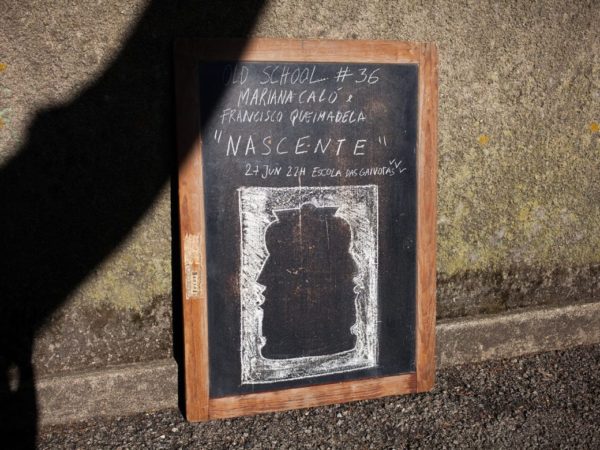 OLD SCHOOL #36
MARIANA CALÓ &
FRANCISCO QUEIMADELA
"NASCENTE"
27 JUN 22H ESCOLA DAS GAIVOTAS